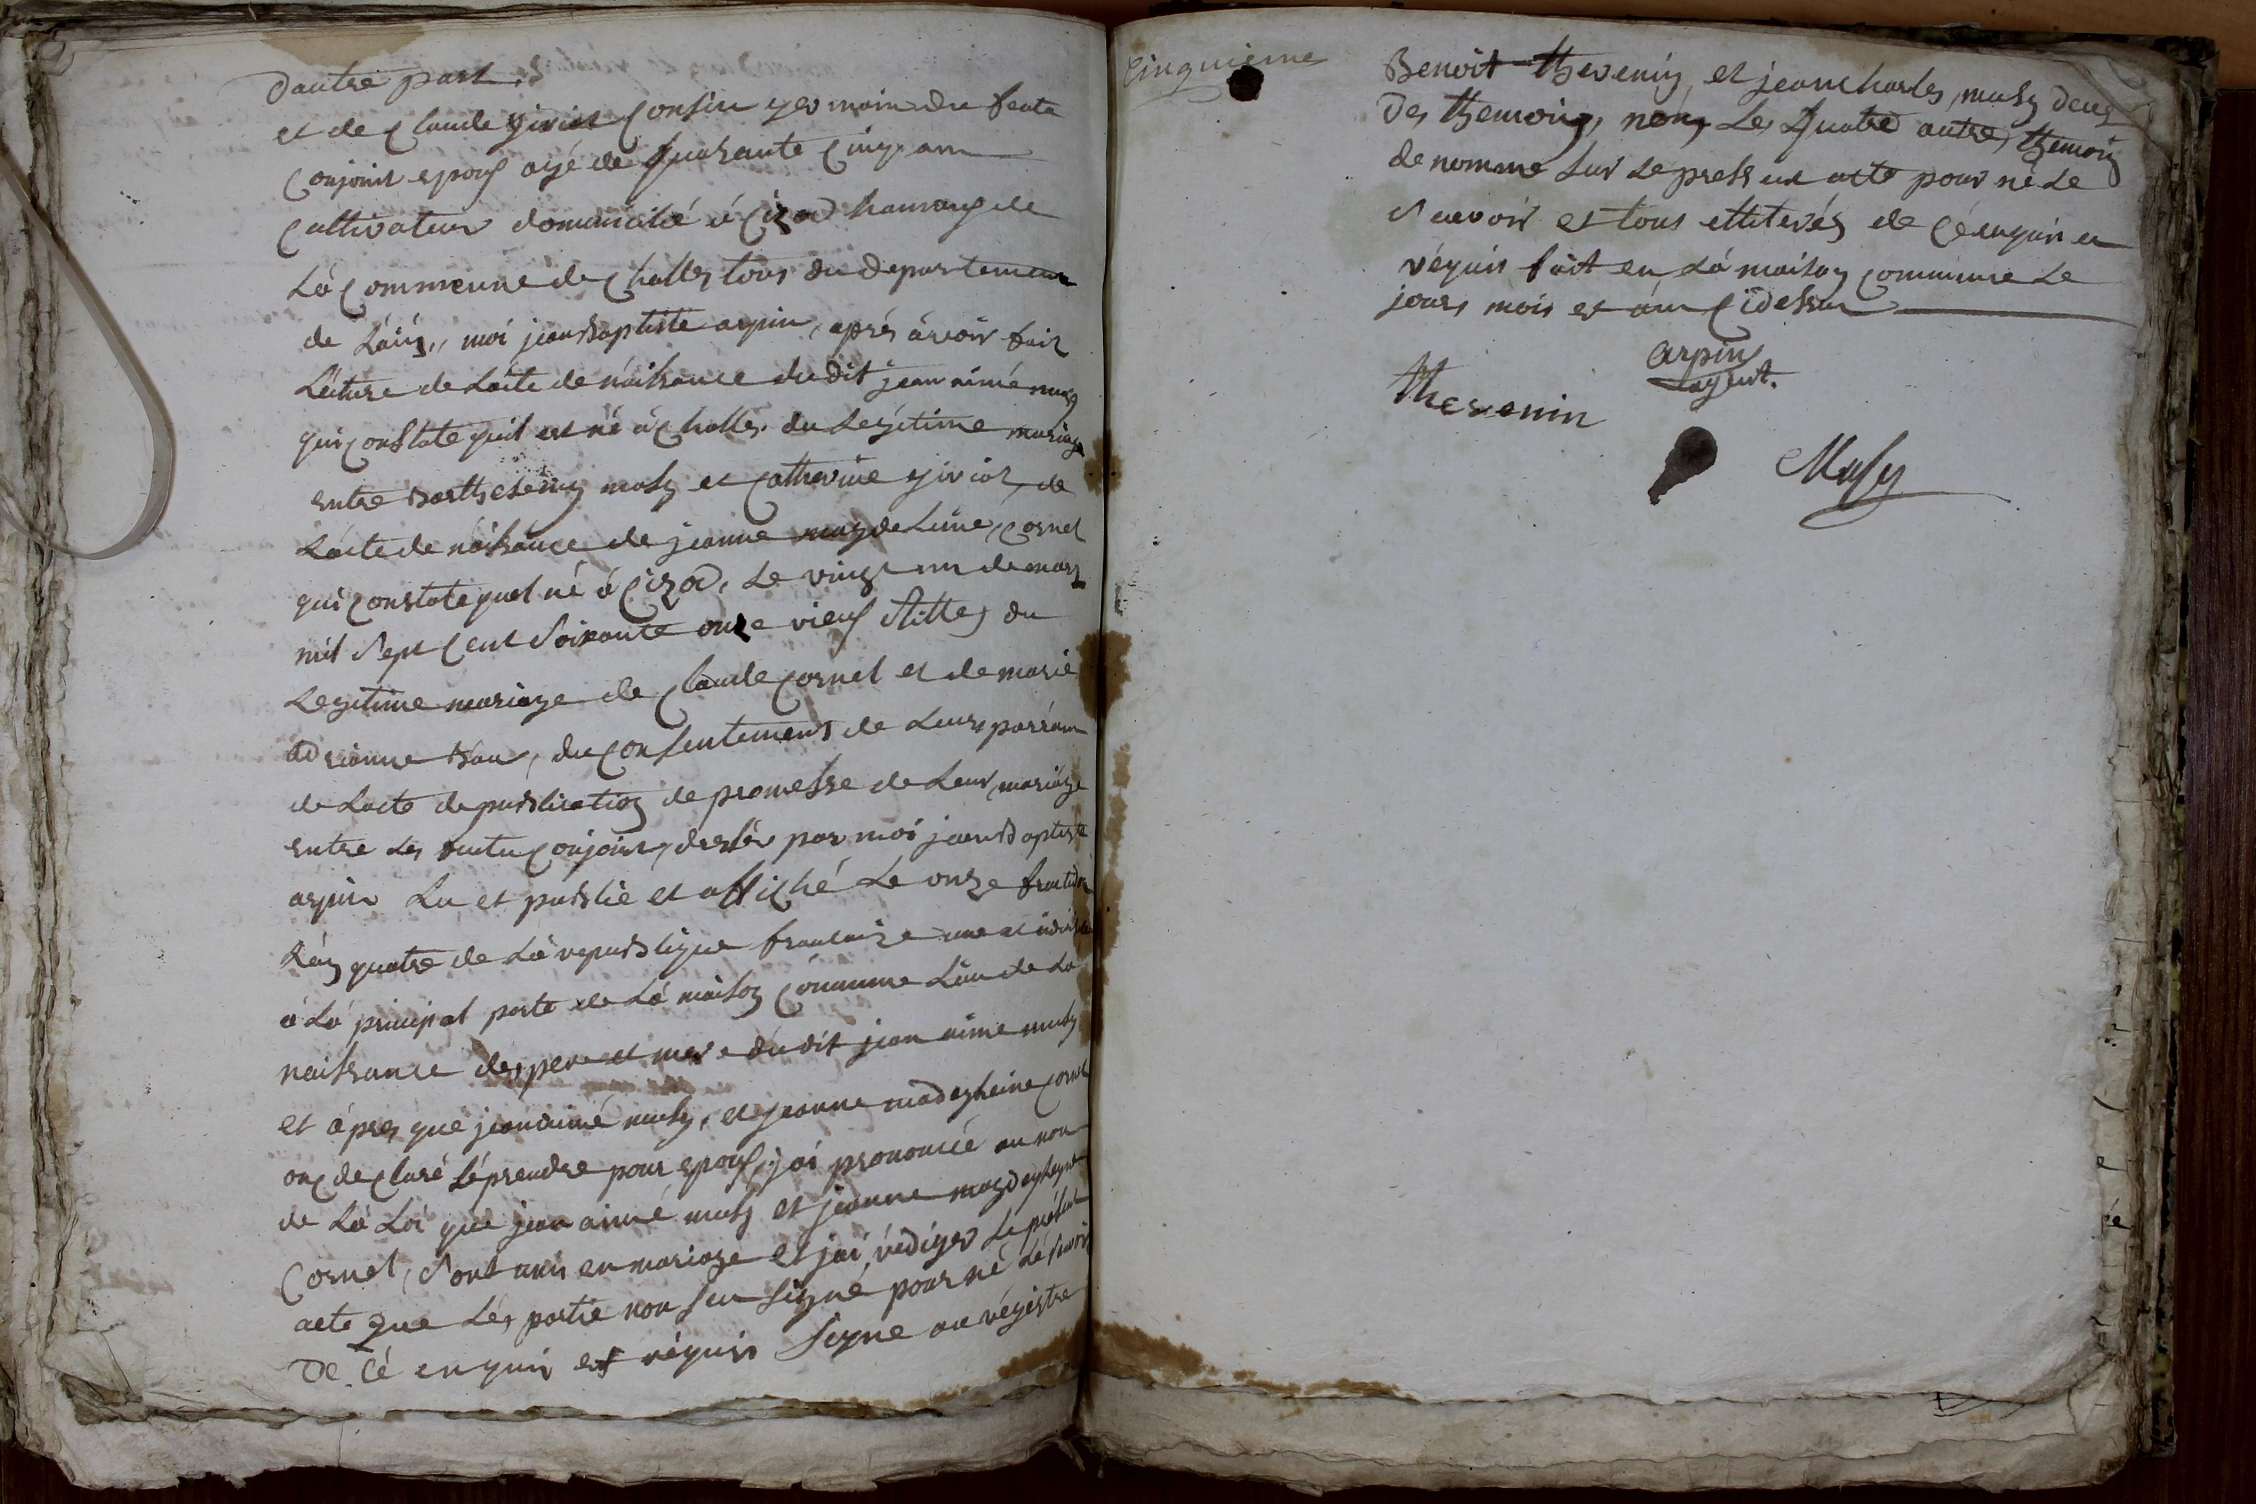 dautre part
et de Claude givriat Consin germain du futa
Conjoint epoux agé de quarante Cinq ans
Cultivateur domicilié á Cizod hamaux de
Lá Commeune de Challes tous du departement
de Láin, moi jean Baptiste arpin, aprés ávoir fait
Lécture de Lácte de náissance dudit jean aimé musy
qui Constate quil est né á Challes du Legitime mariage
entre Barthelemy musy et Catherine givriat, de
Lácte de náissance de jeanne magdeleine Cornet
qui Constate quel né á Cizod, Le vingt un de mars
mil Sept Cent Soixante onze vieux Stille, du
Legitime mariage de Claude Cornet et de marie
adrianne, du Consentement de Leurs parrans
de Lacte de publication de promesse de Leur mariáge
entre Les futu Conjoint, dressér par moi jean Baptiste
arpin Lu et publié et affiché Le onze fructidor
Lán quatre de Lá republique francaize une et indivisible
á Lá principal porte de Lá maison Commune Lieu de La
naissance des pere et mere dudit jean aime musy
et ápres que jean aimé musy, et jeanne madeghleine Cornet
ont declaré se prendre pour epoux, jai prononcé au non
de Lá Loi que jean aimé musy et jeanne magdeghleine
Cornet, Sont unis en mariage et jai rediger Le présent
acte que Les partie non Seu Signé pour né Lé Savoir
De Cé enquis et réquis Signe au régistre
Cinquieme
Benoit thevenin, et jean charles, musy deux
des themoins, nom, Les Quatre autre, themoin
de nomme Sur Le pressent acte pour né Le
Savoir et tous illiterés de Cé enquis et
réquis fait en Lá maison Commune Le
jours mois et án Cidessus
arpin
agent.
Thevenin
Musy